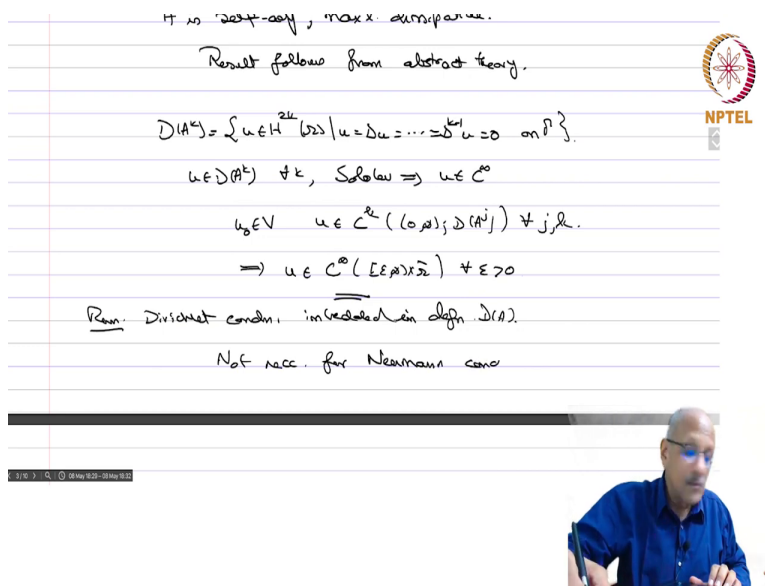 A is self-adj, maxl. dissipative.
Result follows from abstract theory.
D(A^k) = {u ∈ H^{2k}(Ω) | u = Δu = ... = Δ^{k-1}u = 0 on Γ}.
u ∈ D(A^k) ∀k, Sobolev ⇒ u ∈ C^∞
u_0 ∈ V u ∈ C^k((0,∞); D(A^j)) ∀ j,k.
⇒ u ∈ C^∞([ε,∞)×Ω̄) ∀ ε>0
Rem. Dirichlet condn. imbedded in defn. D(A).
Not nec. for Neumann cond
NPTEL
3/10 08 May 18:29 - 08 May 18:32